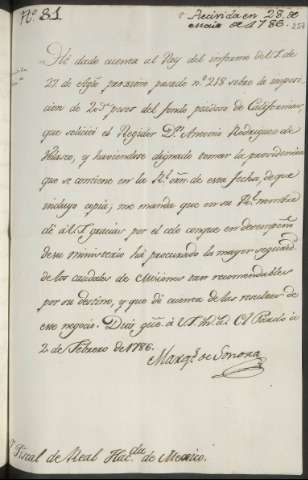 N.º 81.
Recivida en 28 de
Maio de 1786.
He dado cuenta al Rey del informe de V.S. de
27 de Agto. proximo pasado nº 218 sobre la imposi-
cion de 20 pesos del fondo piadoso de Californias,
que solicitó el Regidor Dn. Antonio Rodriguez de
Velasco, y haviendose dignado tomar la providencia
que se contiene en la Rl. orn. de esta fecha, de que
incluyo copia, me manda que en su Rl. nombre
dé á V.S. gracias por el celo con que en desempeño
de su ministerio há procurado la mayor seguridad
de los caudales de Misiones tan recomendables
por su destino, y que dé cuenta de las resultas de
este negocio. Dios gue. á V.S. m. a. El Pardo á
2 de Febrero de 1786.
Marqs. de Sonora
Fiscal de Real Hacda. de Mexico.